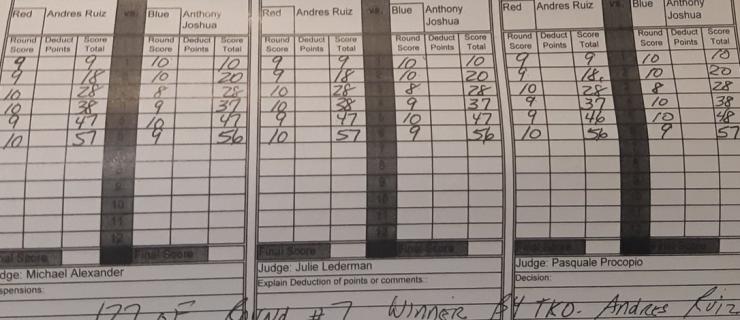 Red Andres Ruiz vs. Blue Anthony Joshua
Round Score Deduct Points Score Total Round Score Deduct Points Score Total
9 9 10 10
9 18 10 20
10 28 8 28
10 38 9 37
9 47 10 47
10 57 9 56
9
10
11
12
Final Score Final Score
Judge: Michael Alexander
Red Andres Ruiz vs. Blue Anthony Joshua
Round Score Deduct Points Score Total Round Score Deduct Points Score Total
9 9 10 10
9 18 10 20
10 28 8 28
10 38 9 37
9 47 10 47
10 57 9 56
Final Score Final Score
Judge: Julie Lederman
Explain Deduction of points or comments:
Red Andres Ruiz vs. Blue Anthony Joshua
Round Score Deduct Points Score Total Round Score Deduct Points Score Total
9 9 10 10
9 18 10 20
10 28 8 28
9 37 10 38
9 46 10 48
10 56 9 57
Final Score
Judge: Pasquale Procopio
Decision:
OF ROUND #7 WINNER BY TKO- Andres Ruiz